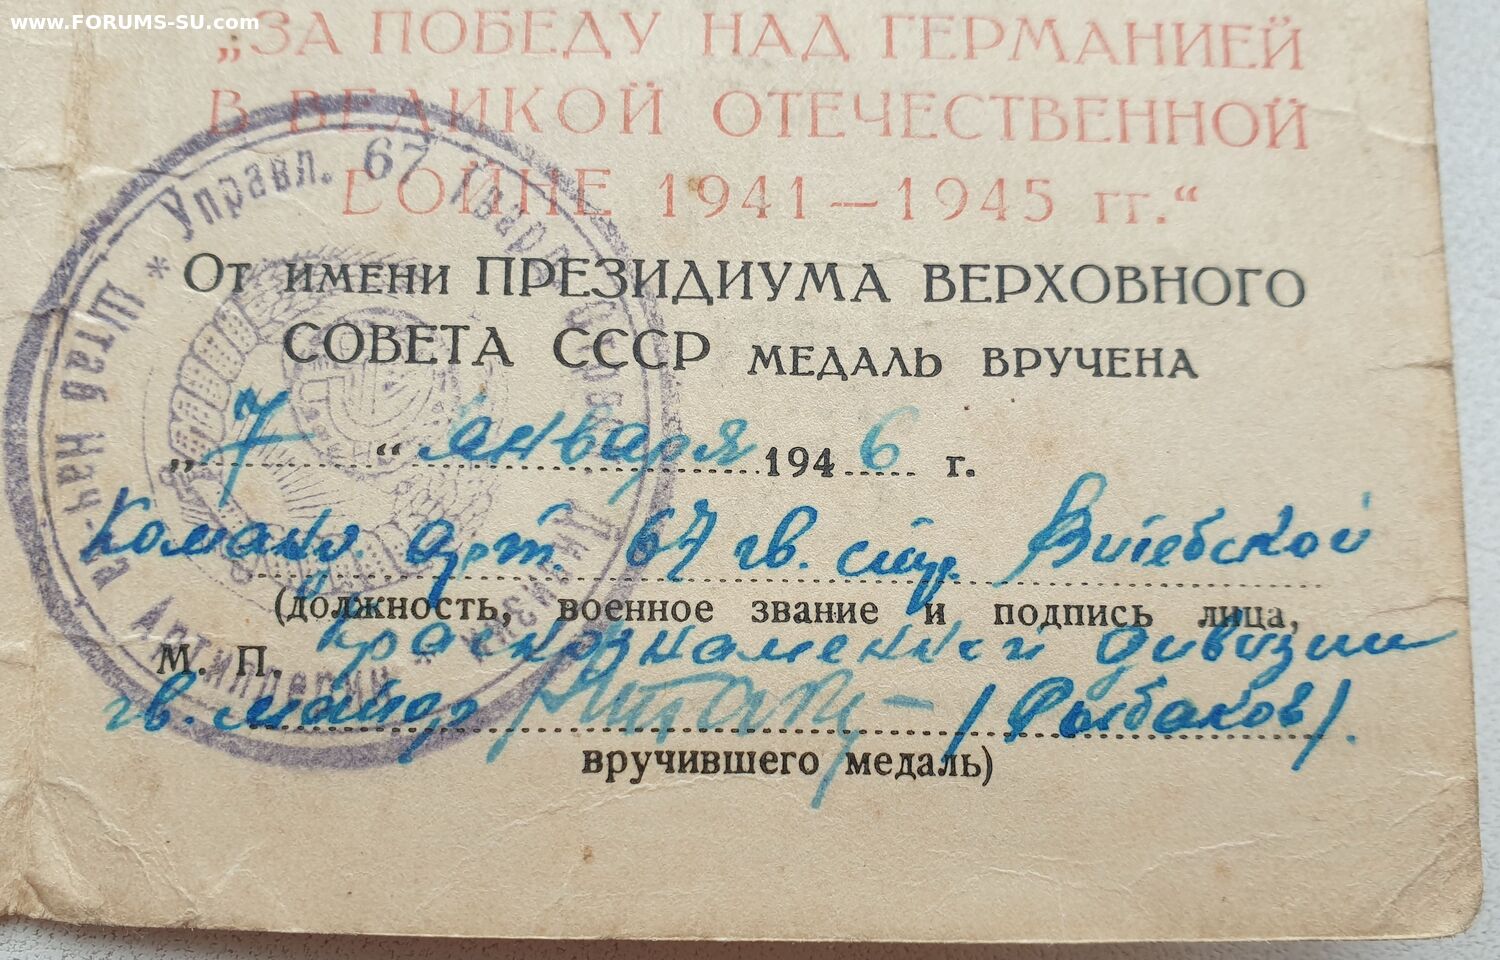 www.FORUMS-SU.com
„ЗА ПОБЕДУ НАД ГЕРМАНИЕЙ
В ВЕЛИКОЙ ОТЕЧЕСТВЕННОЙ
ВОЙНЕ 1941—1945 гг.“
От имени ПРЕЗИДИУМА ВЕРХОВНОГО
СОВЕТА СССР МЕДАЛЬ ВРУЧЕНА
„ 7 “ января 1946 г.
Команд. арт. 67 гв. стр. Витебской
(должность, военное звание и подпись лица,
Краснознаменной дивизии
М. П.
гв. майор (Рыбаков).
вручившего медаль)
Управл. 67 Гвард. Дивизии * Штаб Нач-ка Артиллерии *